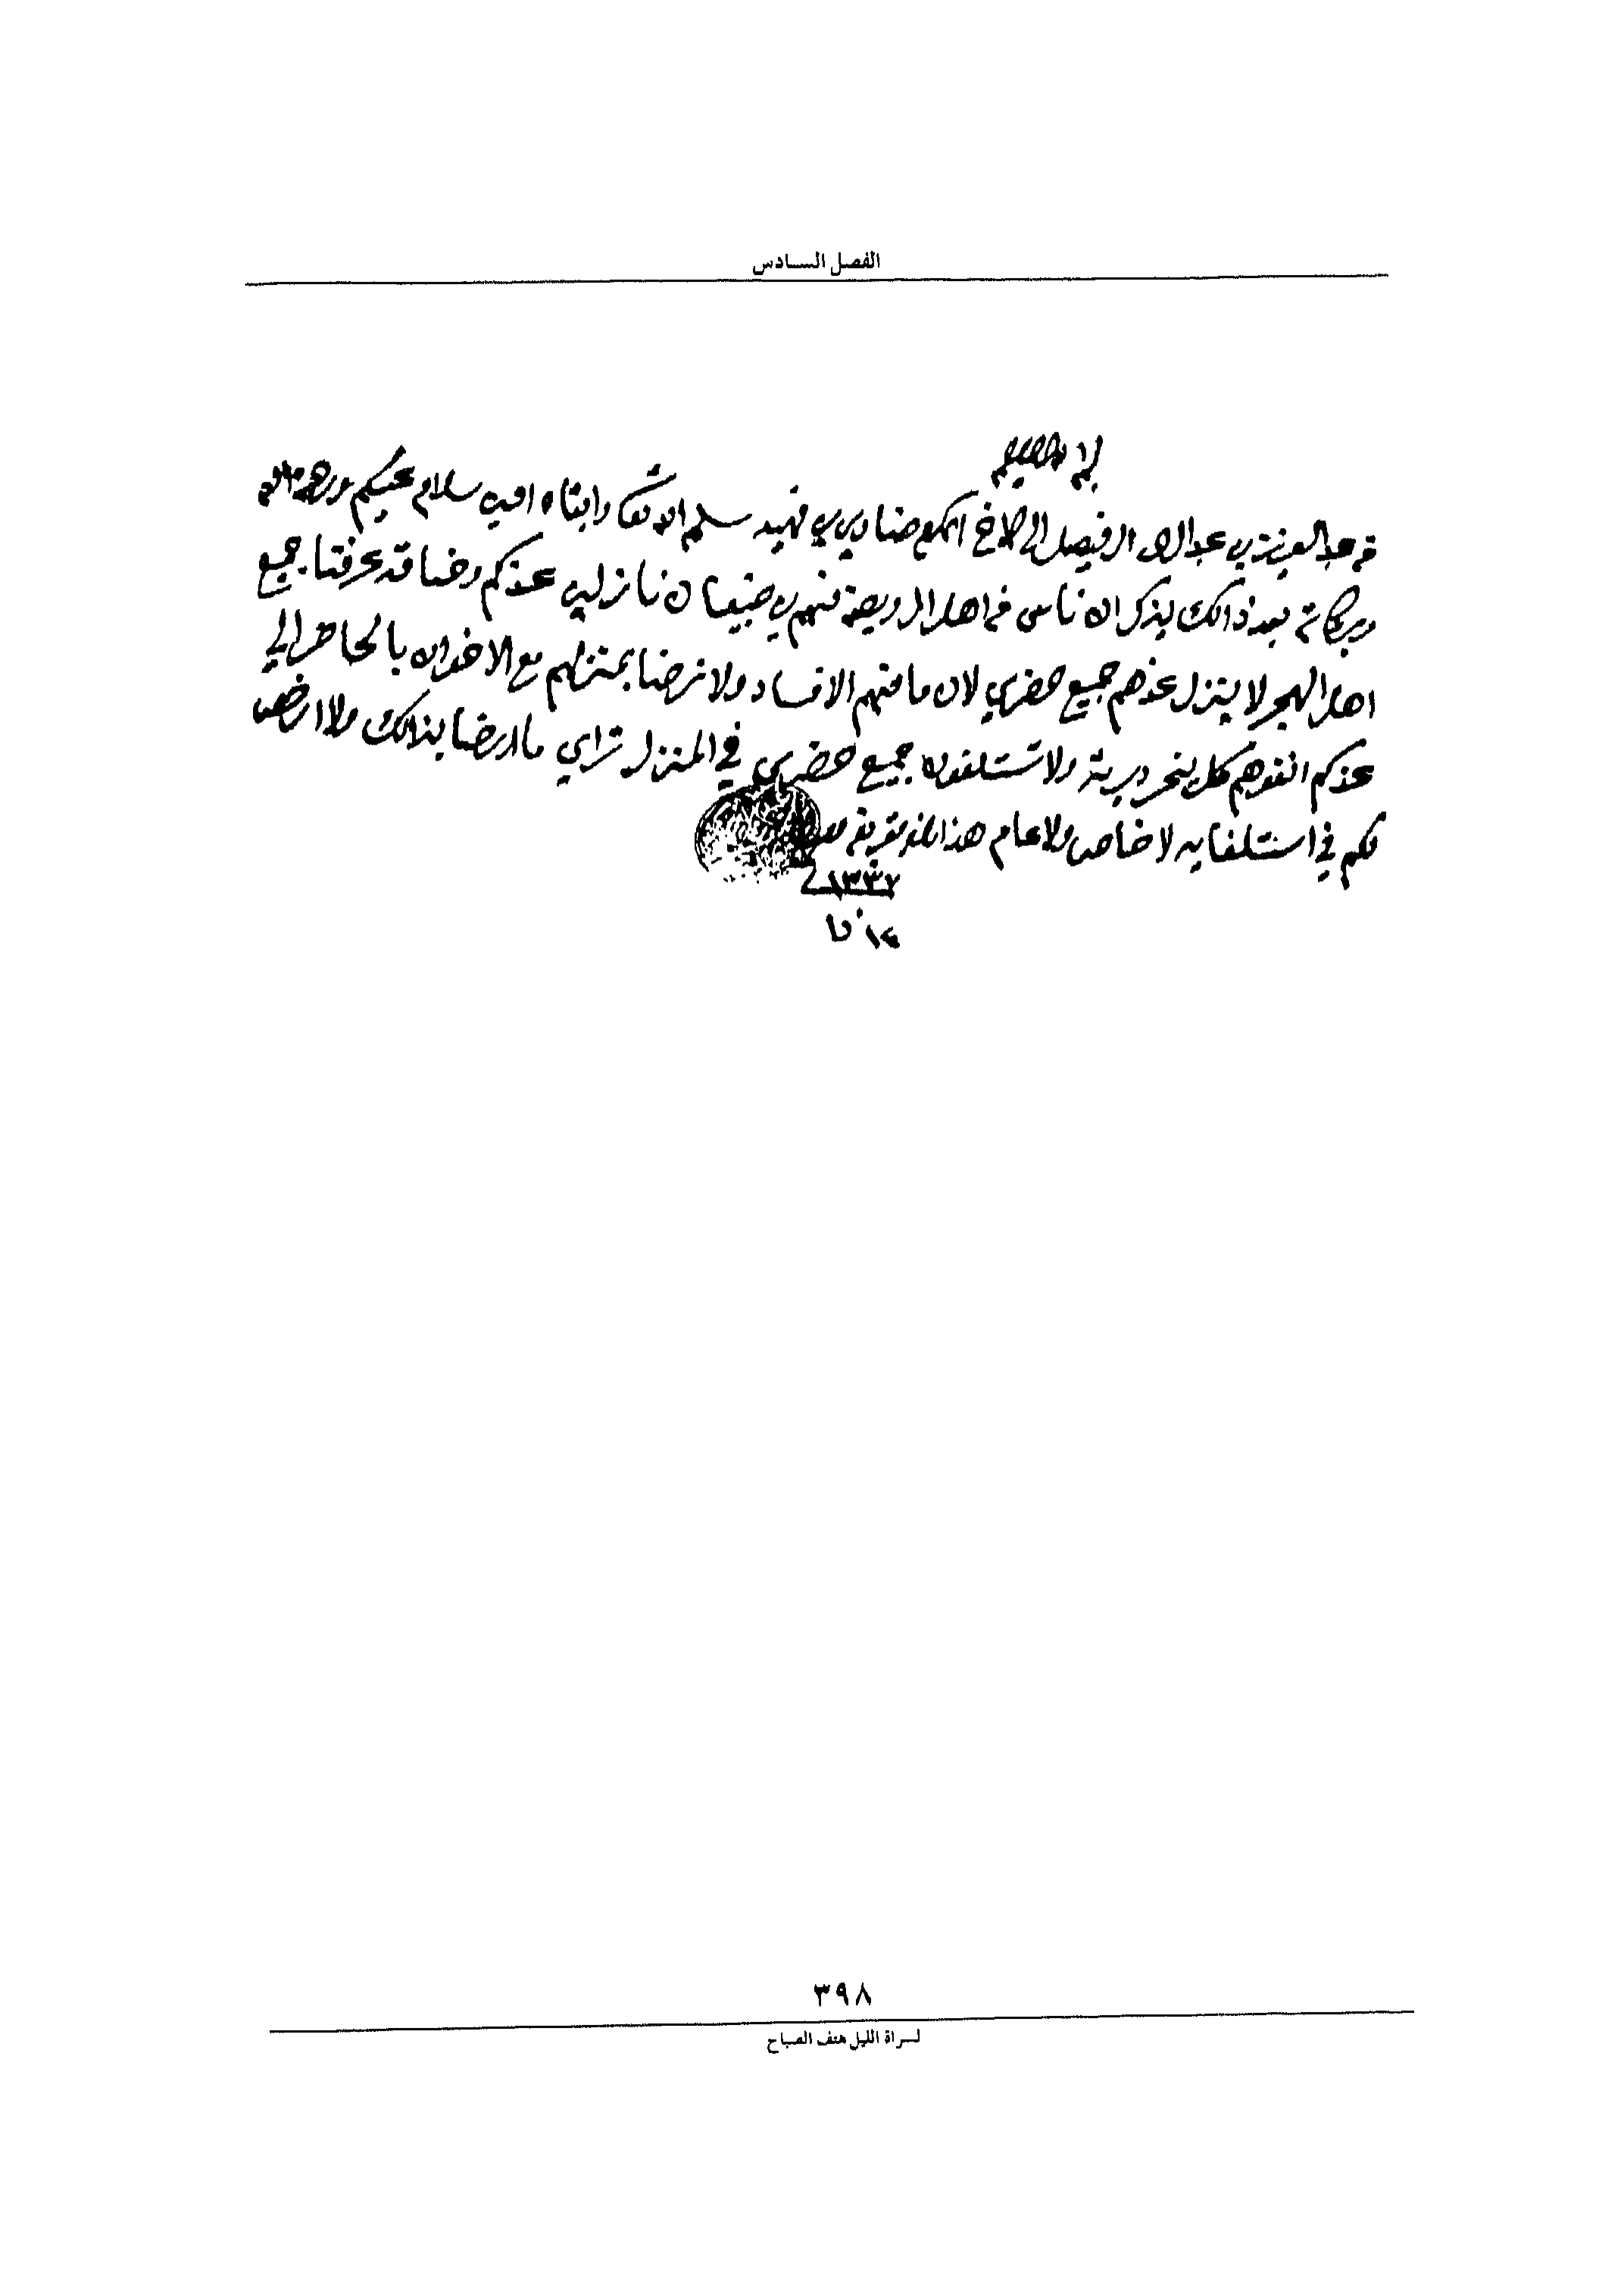 الفصل السادس
من عبدالعزيز بن عبدالرحمن الفيصل الى الاخ المكرم ضاوي بن فهيد سلمه الله تعالى وابقاه امين سلام عليكم ورحمة الله
وبركاته بعد ذالك يذكر ان ناس من اهل الرويضة منهم بن ضبيعان نازلين عندكم وحنا قد عرفنا جميع
اهل الهجر لا ينزل عندهم جميع حضري لان ما منهم الا فساد ولا نرضا بمنزلهم مع الاخوان بالحاظر الي
عندكم انفوهم كل ينحر ديرته ولا تستلفون جميع حضري في المنزل تراي ما ارضا بذالك ولا ارخص
لكم في استلفايه لا خاص ولا عام هذا
١٣٣٧
٣٩٨
لسراة الليل هتف الصباح